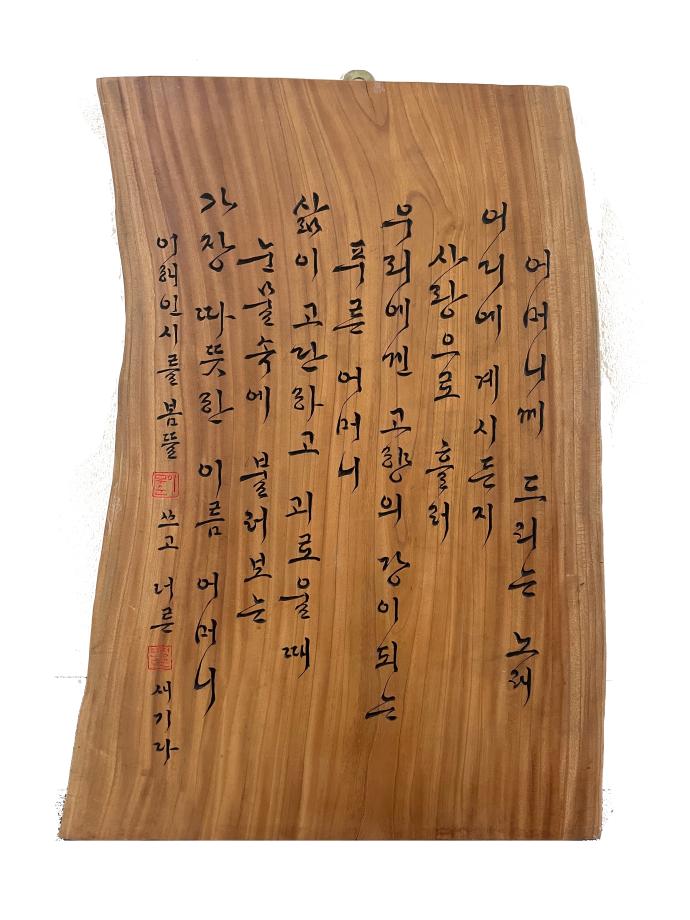 어머니께 드리는 노래
어디에 계시든지
사랑으로 흘러
우리에겐 고향의 강이 되는
푸른 어머니
삶이 고단하고 괴로울 때
눈물 속에 불러보는
가장 따뜻한 이름 어머니
이해인 시를 봄뜰 쓰고 너른 새기다